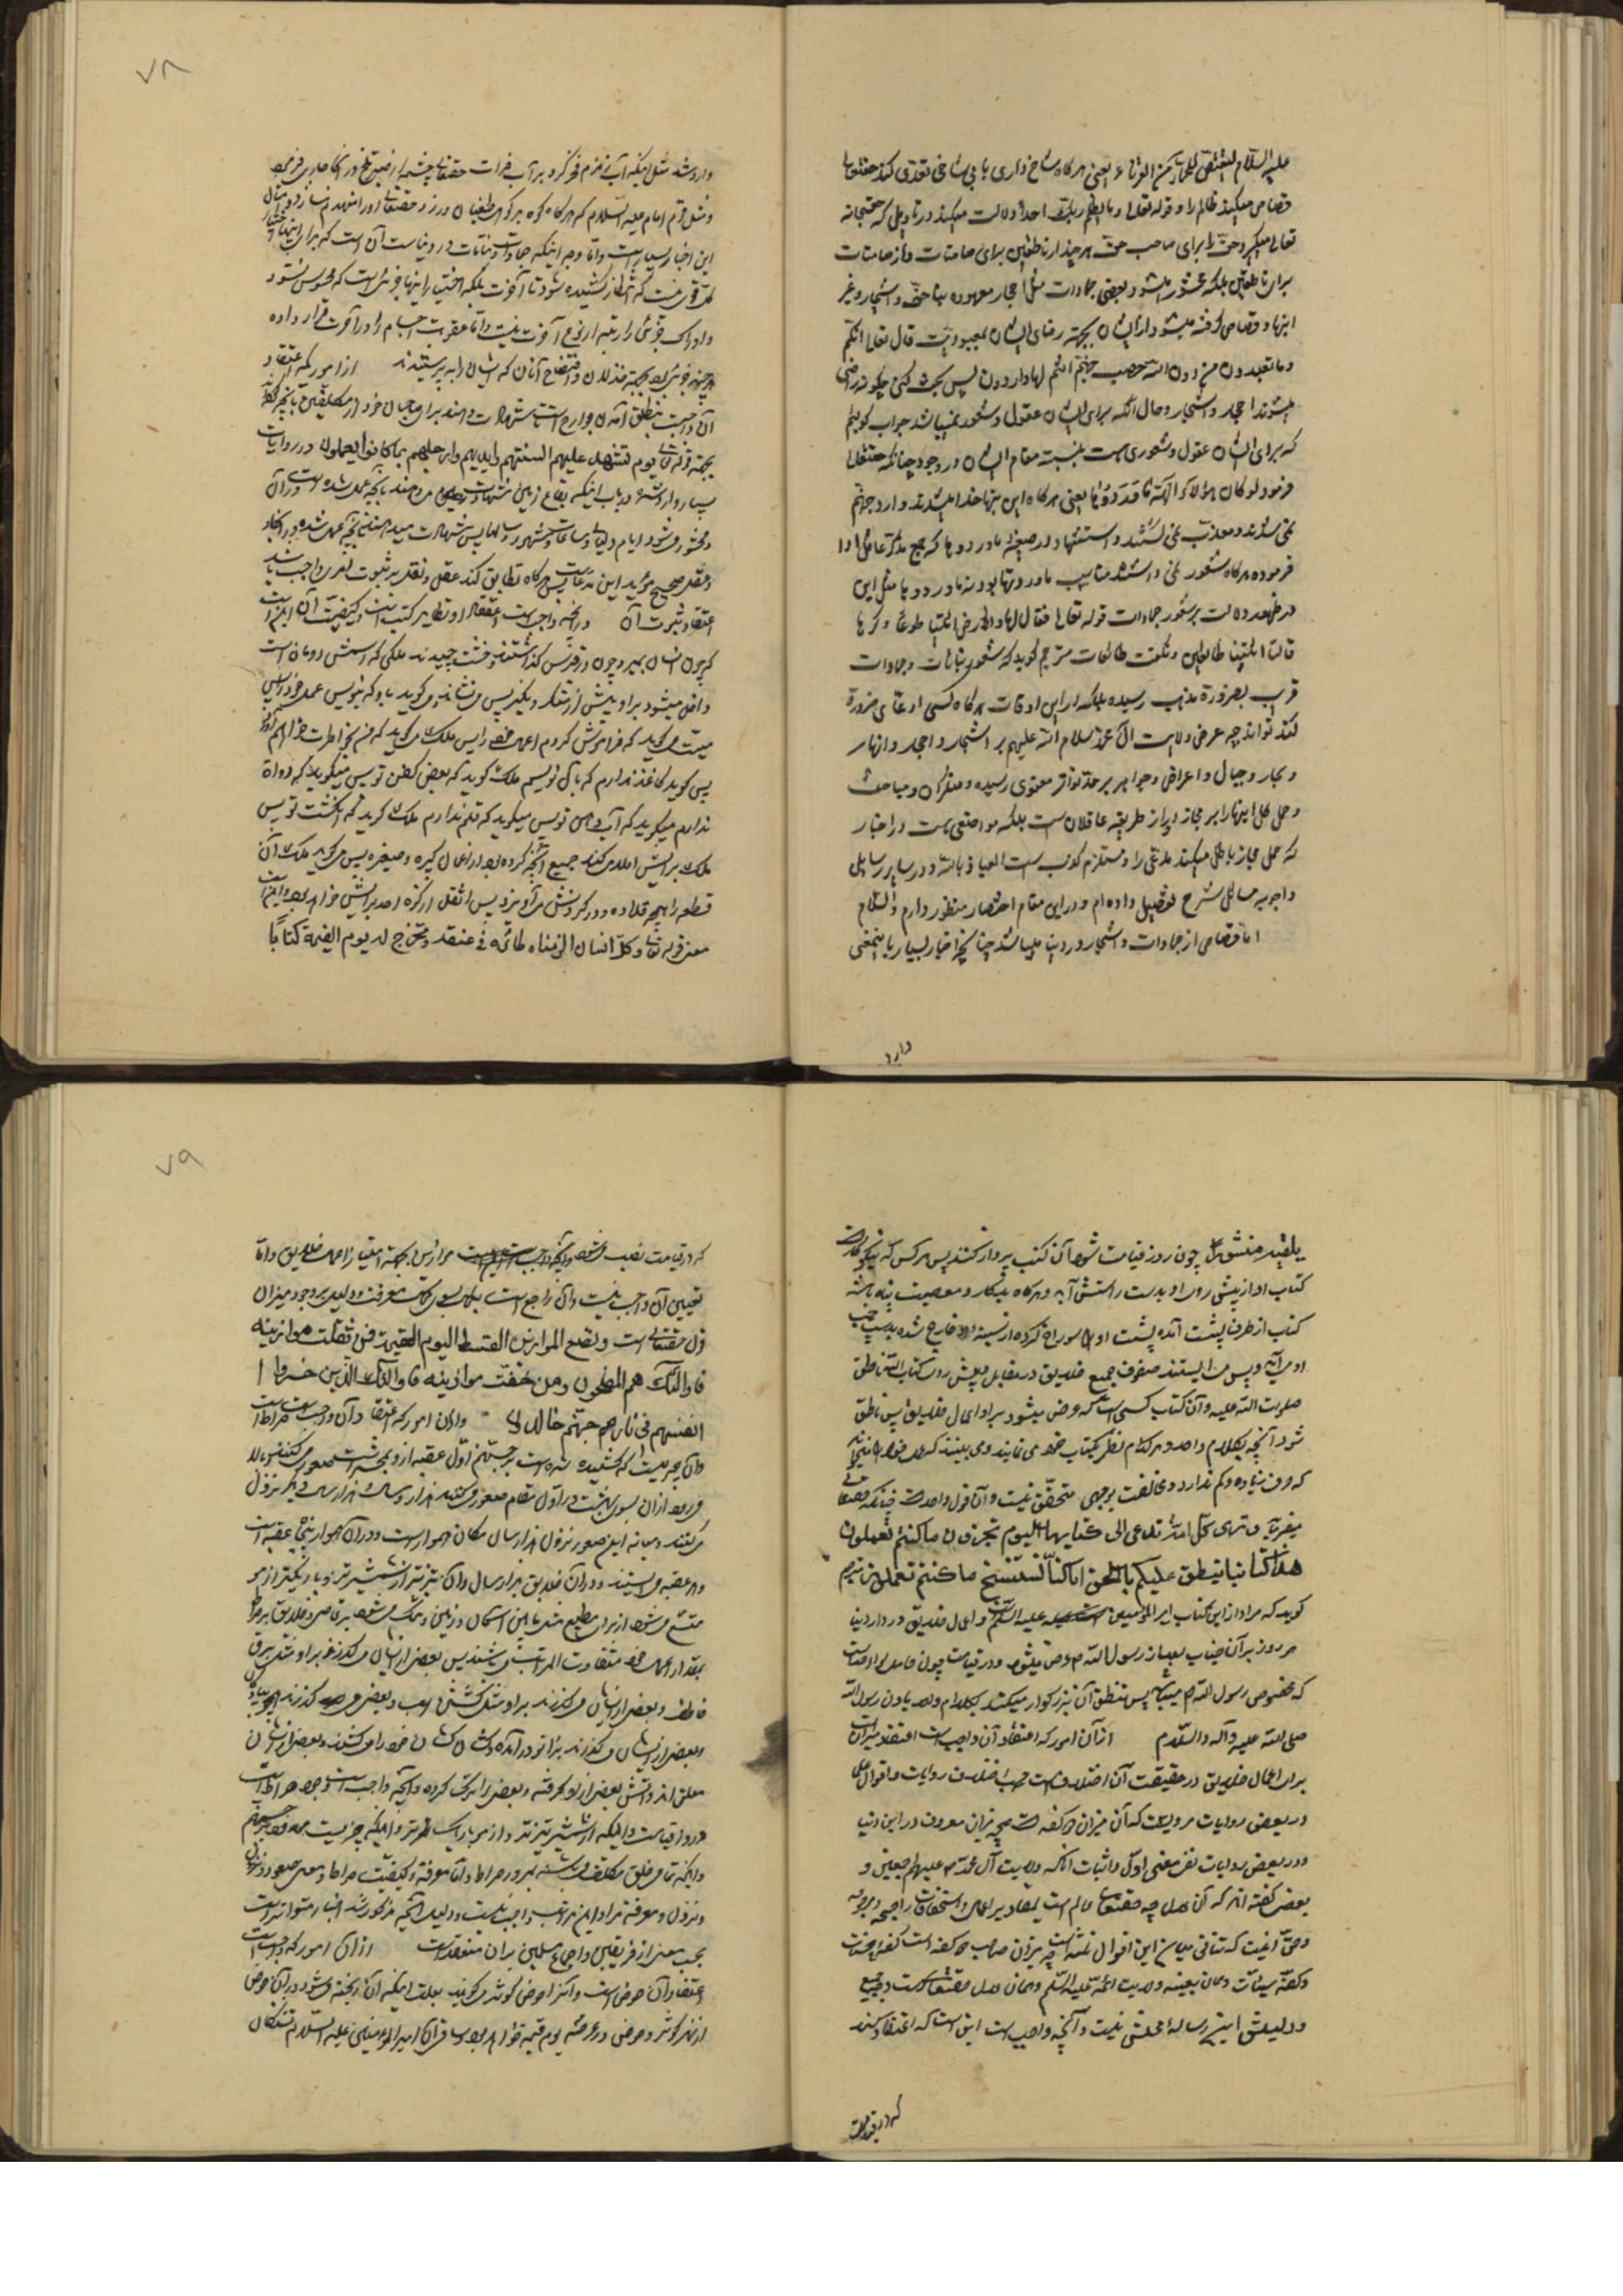 علیه السّلام لیقتص للجمّاء من القرناء یعنی هرکاه شاخ داری با بی شاخی تعدّی کند حقتعالی
قصاص میکند ظالم را و قوله تعالی و لا یظلم ربّک احداً دلالت میکند در تاویل که حقسبحانه
تعالی میکیرد حقّ را برای صاحب حقّ هر چند از ناطقین برای صامتات و از صامتات
برای ناطقین بلکه محشور میشود بعضی جمادات مثل احجار معبوده بناحقّ و اشجار و غیر
اینها و قصاص کرفته میشود از ایشان بجهة رضای ایشان بمعبودیّت قال تعالی انّکم
و ما تعبدون من دون الله حصب جهنّم انتم لها واردون پس بحث کنی چکونه راضی
میشوند احجار و اشجار و حال آنکه برای ایشان عقول و شعور نمیباشد جواب کوئیم
که برای ایشان عقول و شعوری هست بنسبت مقام ایشان در وجود چنانکه حقتعالی
فرمود لو کان هؤلاء آلهة ما وردوها یعنی هرکاه این بتها خدا میشدند وارد جهنّم
نمی شدند و معذّب نمی کشتند و استشهاد در صیغهٔ ما وردوها که جمع مذکّر عاقل ادا
فرموده هرکاه شعور نمی داشتند مناسب ما وردتها بود نه ما وردوها مثل این
در ظهور دلالت بر شعور جمادات قوله تعالی فقال لها و للارض ائتیا طوعاً و کرها
قالتا اتینا طائعین و نکفت طائعات مترجم کوید که شعور نباتات و جمادات
قریب بضرورة مذهب رسیده بلکه در این اوقات هرکاه کسی ادعای ضرورة
کند تواند چه عرض ولایت آل محمّد سلام الله علیهم بر اشجار و احجار و انهار
و بحار و جبال و اعراض و جواهر بر حدّ تواتر معنوی رسیده و منکران و مباحث
و حمل کل اینها را بر مجاز دور از طریقه عاقلان است بلکه مواضعی هست در اخبار
که حمل مجاز باطل میکند مدّعی را و مستلزم کذب است العیاذ بالله و در سایر رسایل
و اجوبه مسائل شرح و تفصیل داده ام و در این مقام اختصار منظور دارم والسّلام
امّا قصاص از جمادات و اشجار در دنیا میباشد چنانچه اخبار بسیار باینمعنی
وارد
٧٨
وارد شد مثل اینکه آب زمزم فخر کرد بر آب فرات حقتعالی چشمهٔ از صبر تلخ در آنجا جاری فرمود
و مثل قول امام علیه السّلام که هرکاه کوه بر کوه طغیان ورزد حقتعالی او را منهدم سازد و امثال
این اخبار بسیار است و امّا وجه اینکه جمادات و نباتات در دنیاست آن است که برای اینها اختیار
کلّ قوی نیست که انتظار کشیده شود تا آخرت بلکه اختیار اینها جزئی است که محسوس نشود
و ادراک جزئی را رتبه از نوع آخرت نیست و امّا عقوبت اجسام را در آخرت قرار داده
هر چند جزئی بود بجهة مذلّت و افتضاح آنان که ایشان را پرستیدند از اموریکه اعتقاد
آن واجبست نطق آمدن جوارح است شهادت دهند برای صاحبان خود از مکلّفین بآنچه کرده
بجهة قوله تعالی یوم تشهد علیهم السنتهم و ایدیهم و ارجلهم بما کانوا یعملون و در روایات
بسیار وارد شده در باب اینکه بقاع زمین شهادت میدهند بآنچه عمل شده است در آن
و محشور میشود ایام و لیالی و ساعات و شهور و سالها پس شهادت میدهند بآنچه عمل شده در آنها و
عقل صحیح مؤید این مدعاست پس هرکاه تطابق کند عقل و نقل بر ثبوت امری واجب باشد
اعتقاد ثبوت آن و آنچه واجب است اعتقاد او تطایر کتب است و کیفیّت آن اینست
که چون انسان بمیرد و چون در قبرش کذاشتند و خشت چیدند ملکی که اسمش رومان است
داخل میشود بر او پیش از منکر و نکیر پس می نشاند و میکوید باو که بنویس عمل خود را پس
میّت میکوید که فراموش کردم اعمال خود را پس ملک میکوید که من بخاطرت خواهم آورد
پس کوید کاغذ ندارم که بآن نویسم ملک کوید که بعض کفن تو پس میکوید که دواة
ندارم میکوید که آب دهن تو پس میکوید که قلم ندارم ملک کوید که انکشت تو پس
ملک برایش املا میکند جمیع آنچه کرده بود از اعمال کبیره و صغیره پس میکیرد ملک آن
قطعه را بهیئة قلاده و در کردنش می آویزد پس اثقل از کوه احد برایش خواهد بود و اینست
معنی قوله تعالی و کلّ انسان الزمناه طائره فی عنقه و نخرج له یوم القیمة کتاباً
یلقیه منشوراً چون روز قیامت شود آن کتب پرواز کنند پس هر کس که نیکوکار است
کتاب او از پیش روی او بدست راستش آید و هرکاه بدکار و معصیت پیشه باشد
کتاب از طرف پشت آمده پشت او را سوراخ کرده از سینهٔ او خارج شده بدست چپ
او می آید و پس می ایستند صفوف جمیع خلایق در مقابل و پیش روی کتاب الله ناطق
صلوات الله علیه و آن کتاب کسی است که عرض میشود بر او اعمال خلایق پس ناطق
شود آنچه بکلام واحد و هر کدام نظر بکتاب خود می نمایند و می بینند که عمل خود را میخواند
که حرفی زیاده و کم ندارد و مخالفت بوجهی متحقّق نیست و آن قول واحد است چنانکه حقتعالی
میفرماید و تری کلّ امّة تدعی الی کتابها الیوم تجزون ما کنتم تعملون
هذا کتابنا ینطق علیکم بالحقّ انا کنّا نستنسخ ما کنتم تعملون مترجم
کوید که مراد از این کتاب امیر المؤمنین علیه السّلام و اعمال خلایق در دار دنیا
هر روز بر آن جناب بعد از رسول الله ص عرض میشود و در قیامت چون حامل لواء حمد است
که مخصوص رسول الله ص میباشد پس تنطق آن بزرکوار میکند بکلام واحد باذن رسول الله
صلی الله علیه و آله والسّلام از آن امور که اعتقاد آن واجب است اعتقاد میزان است
برای اعمال خلایق در حقیقت آن اختلاف است بحسب اختلاف روایات و اقوال علما
در بعضی روایات مرویست که آن میزان دو کفه است مثل میزان معروف در این دنیا
و در بعض روایات نفی معنی اوّل و اثبات آنکه ولایت آل محمّد ص علیهم اجمعین و
بعضی کفته اند که آن عدل چه حقتعالی عالم است بمقادیر اعمال و استحقاقات راجحه و مرجوحه
و حقّ اینست که تنافی میان این اقوال نیست چه میزان صاحب دو کفه است کفهٔ حسنات
و کفّهٔ سیئات و همان بعینه ولایت ائمه علیه السّلم و همان عدل حقتعالی است و جمیع
و دلیلش این رساله محلّش نیست و آنچه واجب است این است که اعتقاد کنند
که در قیامت
٧٩
که در قیامت نصب میشود موازین بجهة امتیاز اعمال خلایق و امّا
تعیین آن واجب نیست و آن راجع است بکمال معرفت و دلیل بر وجود میزان
قول حقتعالی است و نضع الموازین القسط لیوم القیمة فمن ثقلت موازینه
فاولئک هم المفلحون و من خفّت موازینه فاولئک الذین خسروا
انفسهم فی جهنّم خالدون و از آن امور که اعتقاد آن واجب است صراط است
و آن جسریست که کشیده شده است بر جهنّم اوّل عقبه از او محشر است صعود میکنند بر بالا
و میروند از آن بسوی بهشت در اوّل مقام صعود میکنند هزار سال و هزار سال دیکر نزول
میکنند و میانه این صعود و نزول هزار سال مکان هموار است و در آن هموار پنجاه عقبه است
در هر عقبه می ایستند در آن خلایق هزار سال و آن تیزتر از شمشیر تیز و باریکتر از مو
متّسع میشود از برای مطیع مثل ما بین آسمان و زمین و تنک میشود بر عاصی و خلایق بر صراط
بمقدار اعمال خود متفاوت المراتب میباشند پس بعضی از ایشان میکذرند بر او مثل برق
خاطف و بعضی از ایشان میکذرند بر او مثل اسب و بعضی میکذرند پیاده
و بعضی از ایشان میکذرند بزانو در آمده و کشان کشان خود را میکشند و بعضی از ایشان
معلّق اند و آتش بعضی از او کرفته و بعضی را ترک کرده و آنچه واجب است وجود صراط است
در روز قیامت و اینکه از شمشیر تیزتر و از مو باریک تر و اینکه جسریست ممدود بر جهنّم
و اینکه تمامی خلق مکلّف میباشند بمرور صراط و امّا معرفة کیفیّت صراط و معنی صعود و نزول
و نزول و معرفة مراد این مراتب واجب نیست و دلیل آنچه مذکور شد اخبار متواتره است
بحسب معنی از فریقین و اجماع مسلمین بر آن منعقد است از آن امور که واجب است
اعتقاد آن حوض است و آنرا حوض کوثر میکویند بعلّت اینکه آب ریخته میشود در آن حوض
از نهر کوثر و حوض در عرصهٔ یوم قیمة خواهد بود و ساقی آن امیر المؤمنین علیه السّلام تشنکان